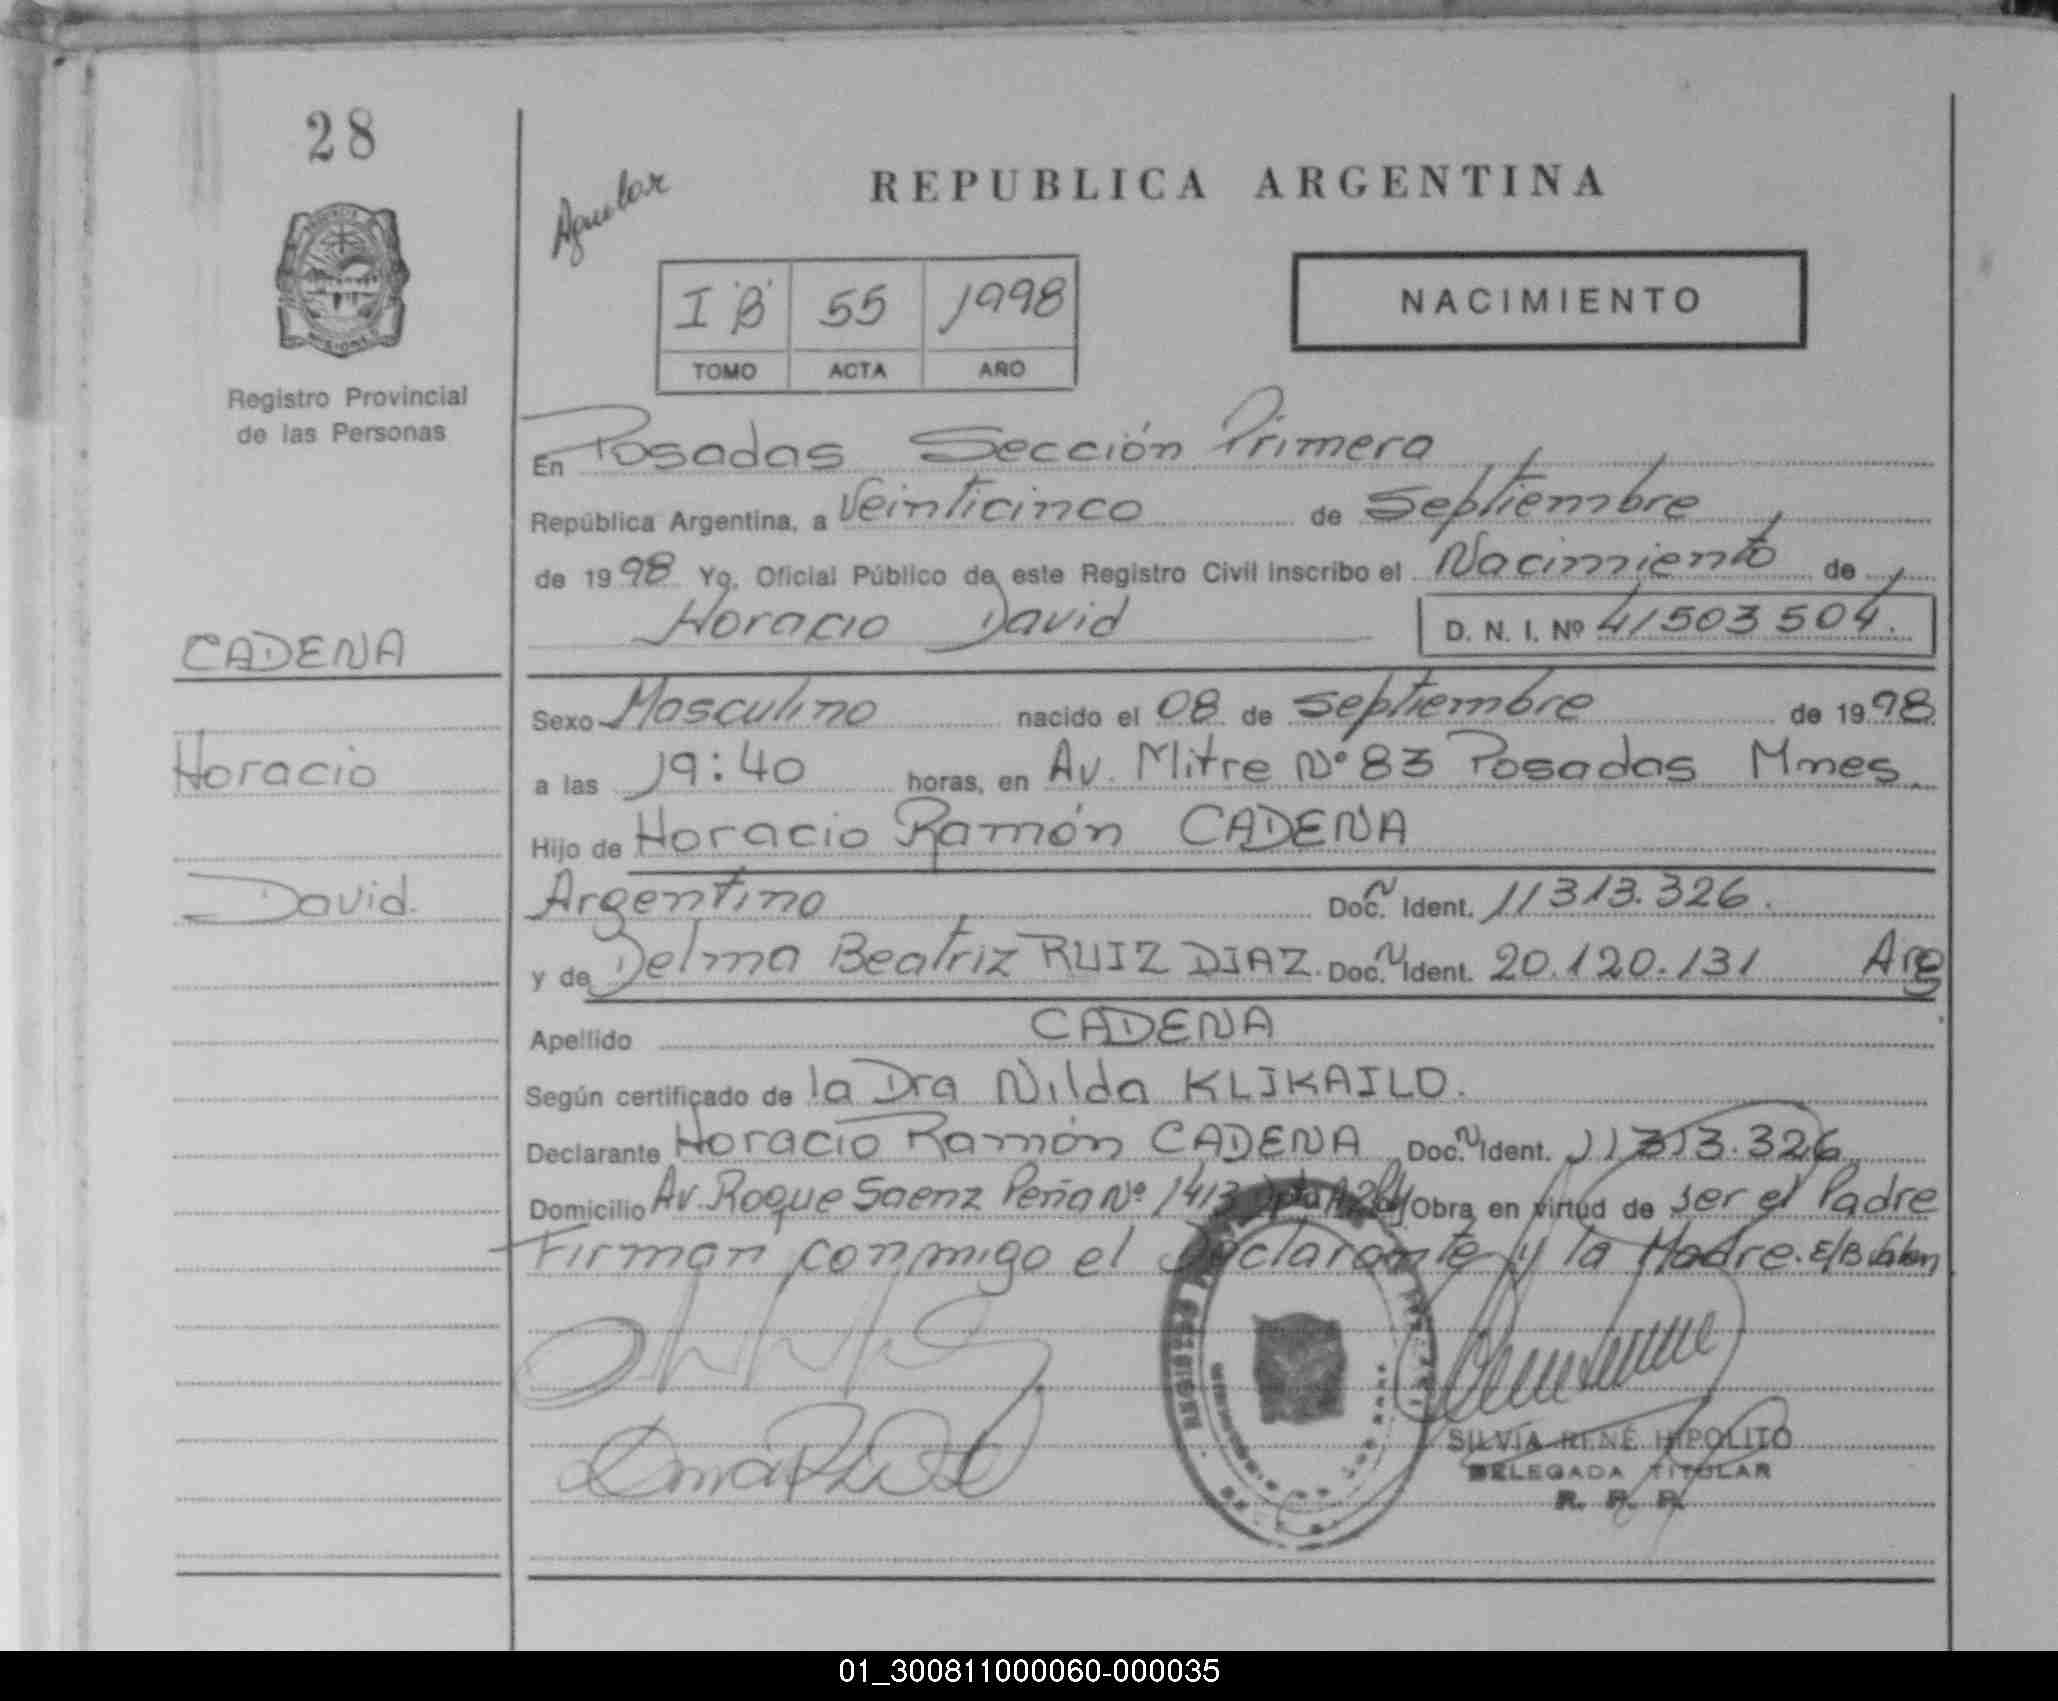 28
REPUBLICA ARGENTINA
NACIMIENTO
I 'B' 55 1998
TOMO ACTA AÑO
Registro Provincial
de las Personas
En Posadas Sección Primera
República Argentina, a Veinticinco de Septiembre
de 1998 Yo, Oficial Público de este Registro Civil inscribo el Nacimiento de
Horacio David D. N. I. Nº 41503504.
CADENA
Sexo Masculino nacido el 08 de Septiembre de 1998
Horacio
a las 19:40 horas, en Av. Mitre Nº 83 Posadas Mnes.
Hijo de Horacio Ramón CADENA
David.
Argentino Doc. Ident. 11313.326.
y de Delma Beatriz RUIZ DIAZ. Doc. Ident. 20.120.131 Arg
Apellido CADENA
Según certificado de la Dra Nilda KLIKAILO.
Declarante Horacio Ramón CADENA Doc. Ident. 11313.326
Domicilio Av. Roque Saenz Peña Nº 1413 Obra en virtud de ser el Padre
Firman conmigo el Declarante y la Madre.
SILVIA RENE HIPOLITO
DELEGADA TITULAR
R. P. P.
01_300811000060-000035